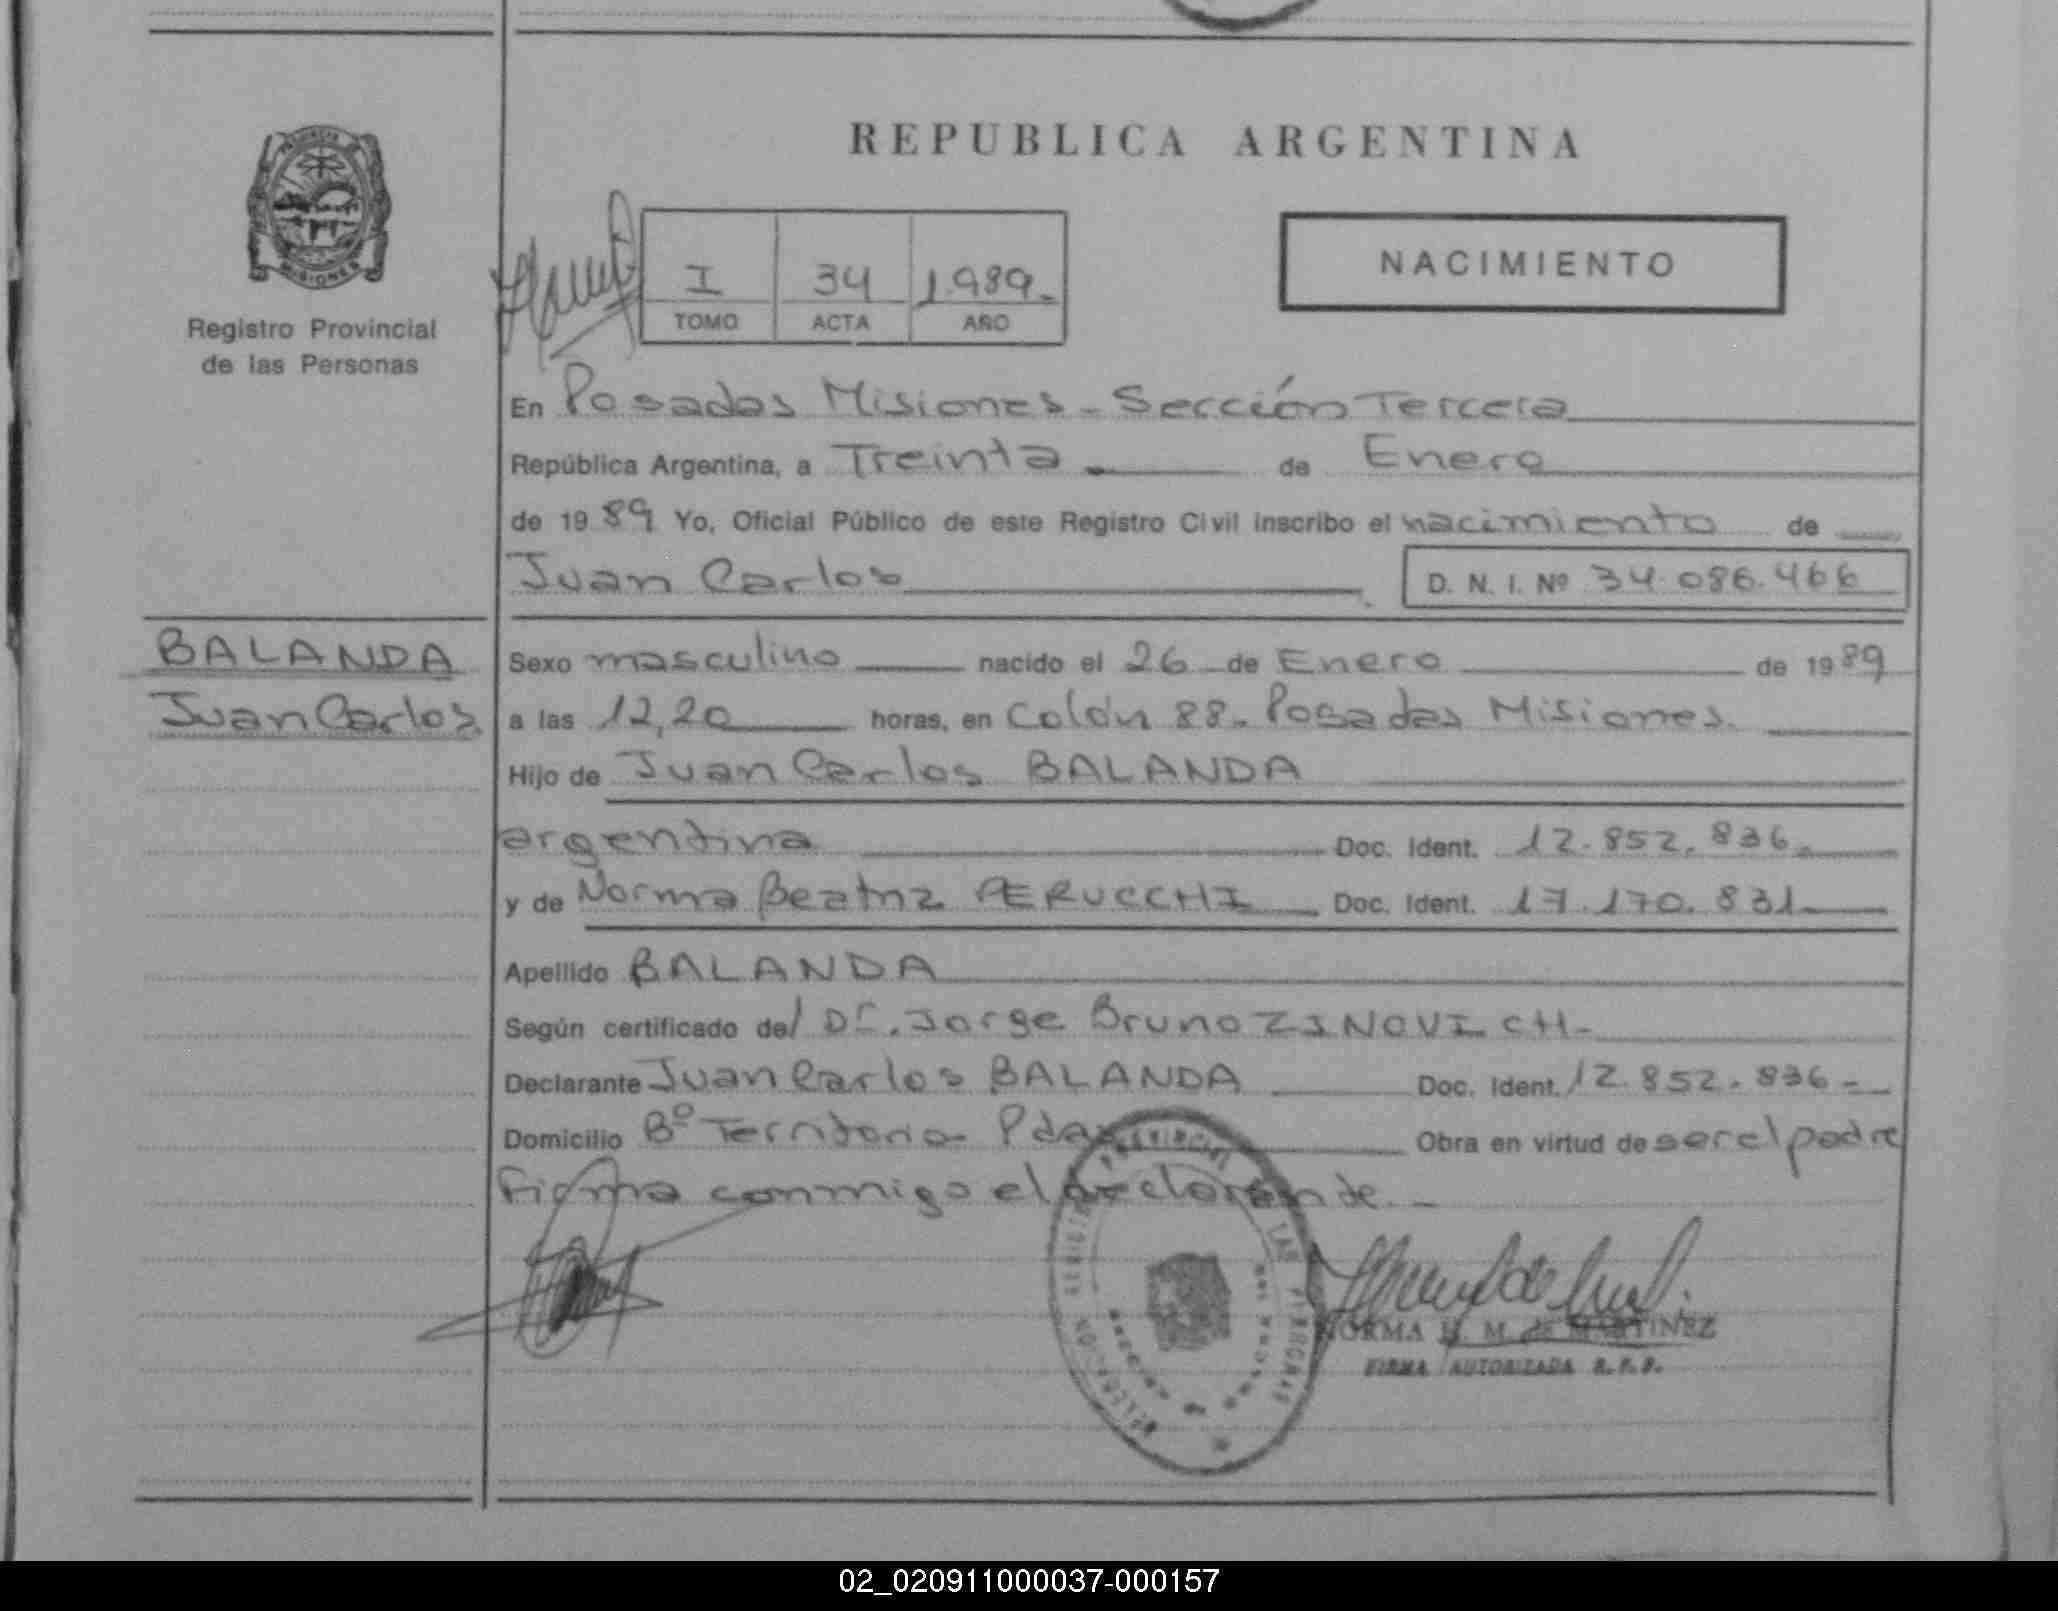 REPUBLICA ARGENTINA
PROVINCIA DE
MISIONES
Registro Provincial
de las Personas
I 34 1.989.-
TOMO ACTA AÑO
NACIMIENTO
En Posadas Misiones - Sección Tercera
República Argentina, a Treinta de Enero
de 19 89 Yo, Oficial Público de este Registro Civil inscribo el nacimiento de
Juan Carlos D. N. I. Nº 34.086.466
BALANDA
Juan Carlos
Sexo masculino nacido el 26 de Enero de 19 89
a las 12,20 horas, en Colón 88. Posadas Misiones.
Hijo de Juan Carlos BALANDA
argentina Doc. Ident. 12.852.836.
y de Norma Beatriz PERUCCHI Doc. Ident. 17.170.831
Apellido BALANDA
Según certificado del Dr. Jorge Bruno ZINOVICH-
Declarante Juan Carlos BALANDA Doc. Ident. 12.852.836-
Domicilio Bº Territorio- Pdas Obra en virtud de ser el padre
Firma conmigo el declarante.-
NORMA M. de MARTINEZ
FIRMA AUTORIZADA R.P.P.
02_020911000037-000157